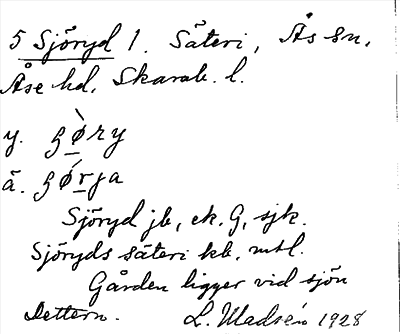 5 Sjöryd 1. Säteri, Ås sn,
Åse hd, Skarab. l.
y. ʒø̀ry
ä. ʒǿrja
Sjöryd jb, ek. G, sjk.
Sjöryds säteri kb, mtl.
Gården ligger vid sjön
Dettern. L. Madsén 1928